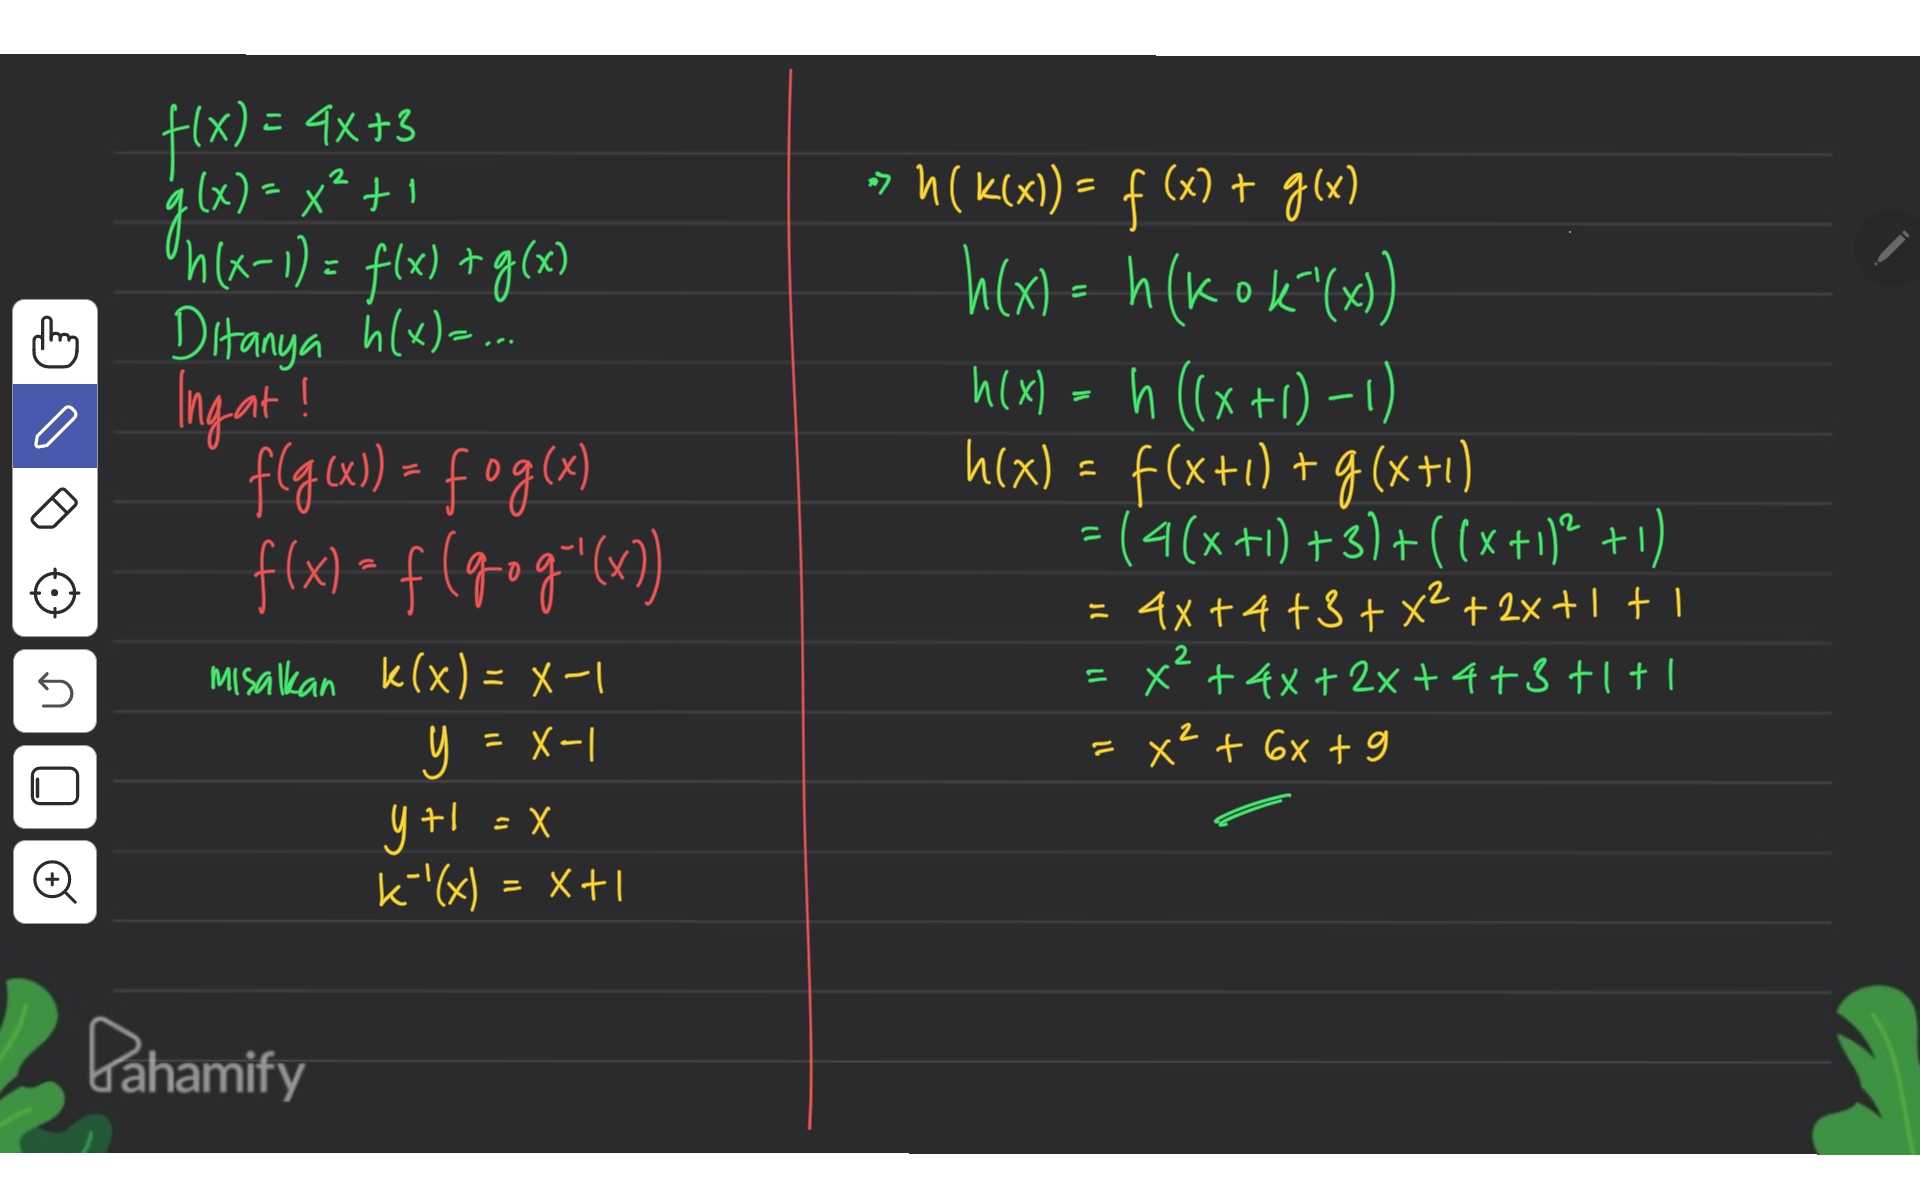 f(x) = 4x+3
g(x) = x² + 1
h(x-1) = f(x) + g(x)
Ditanya h(x) = ...
Ingat !
f(g(x)) = f o g(x)
f(x) = f (g o g⁻¹(x))
misalkan k(x) = x-1
y = x-1
y+1 = x
k⁻¹(x) = x+1
Pahamify
⇒ h(k(x)) = f(x) + g(x)
h(x) = h(k o k⁻¹(x))
h(x) = h((x+1)-1)
h(x) = f(x+1) + g(x+1)
= (4(x+1)+3)+((x+1)² +1)
= 4x+4+3+x²+2x+1+1
= x²+4x+2x+4+3+1+1
= x² + 6x + 9